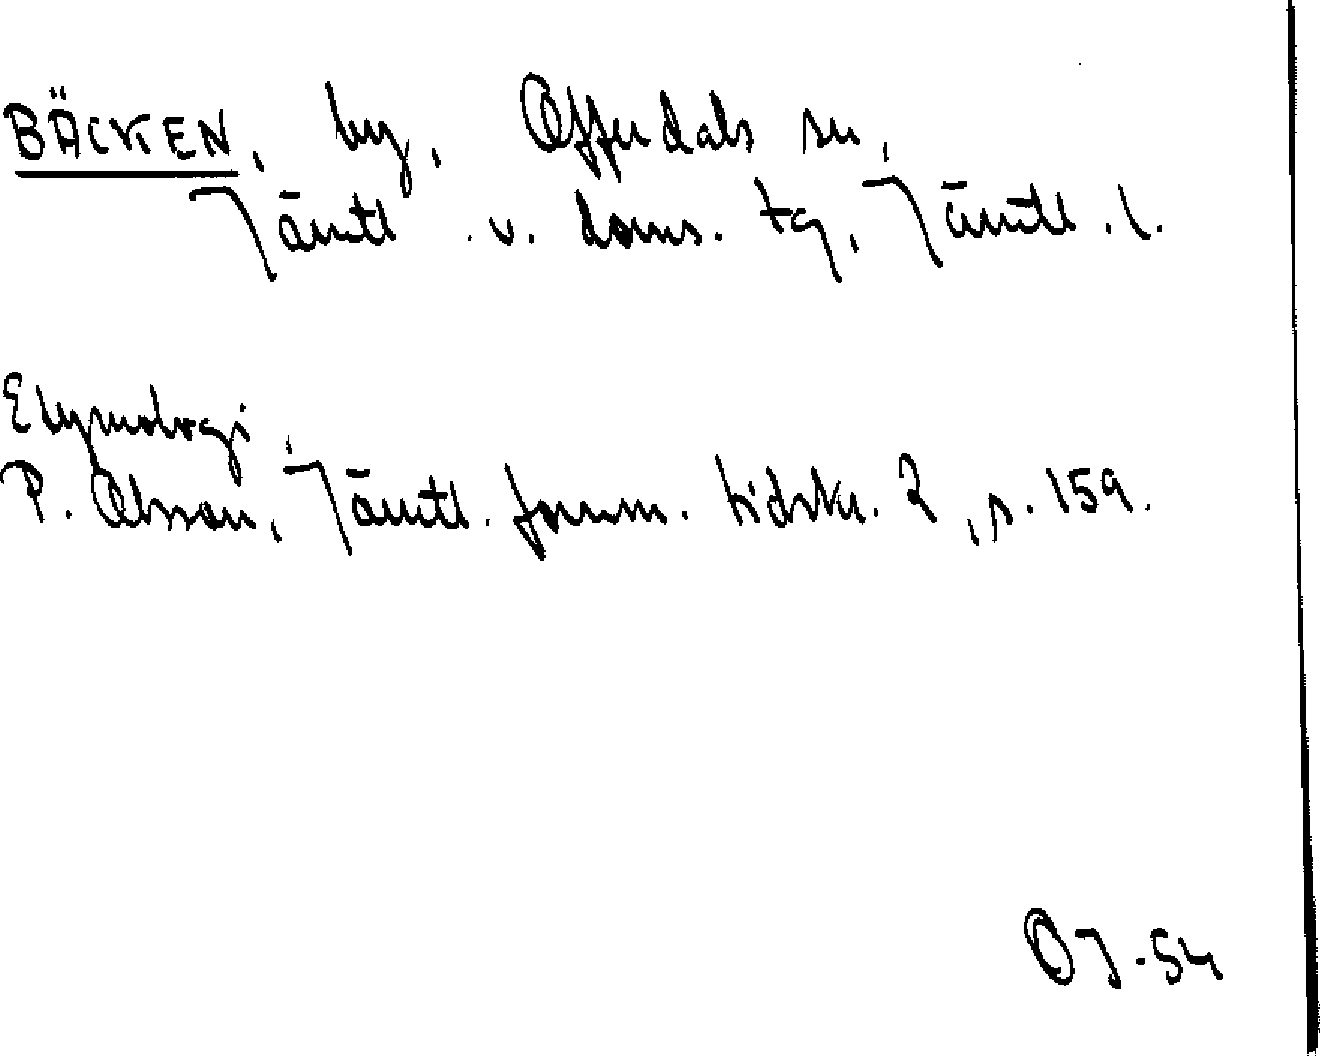 BÄCKEN, by, Offerdals sn,
Jämtl. v. doms. tg, Jämtl. l.
Etymologi,
P. Olsson, Jämtl. fornm. tidskr. 2, s. 159.
OJ-54